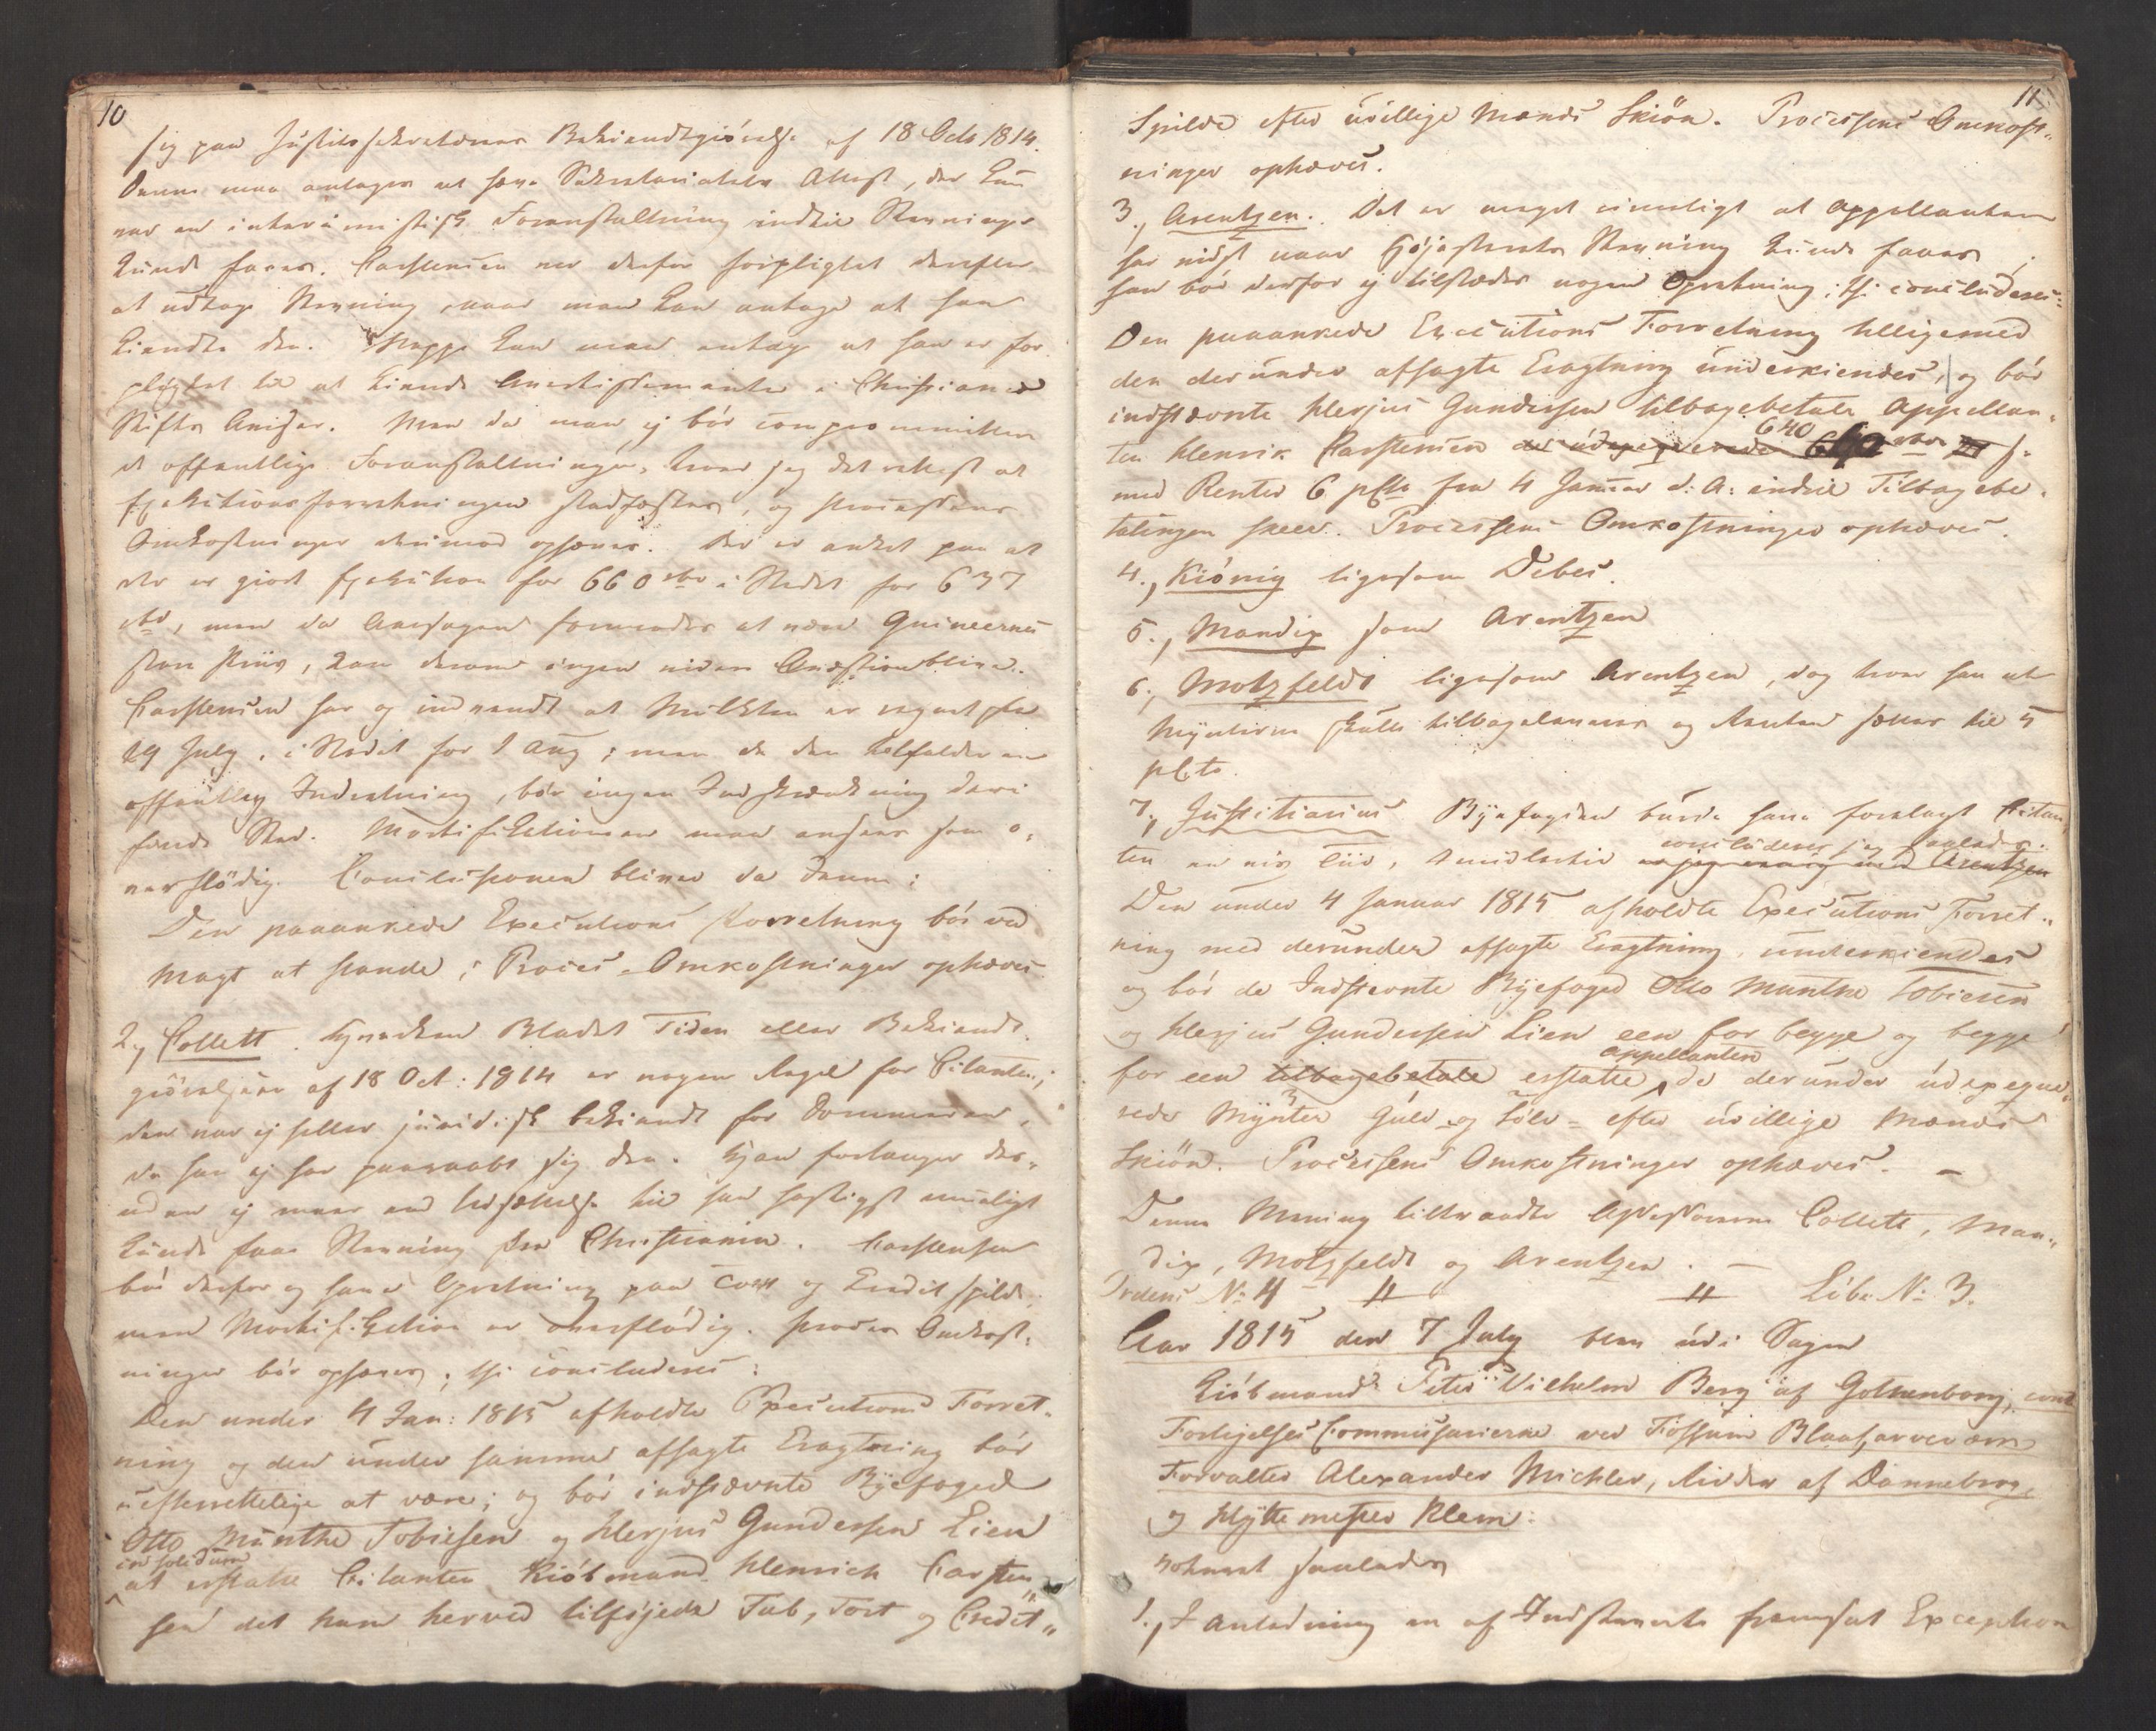 10
sig paa Justitssekretærens Bekiendtgiørelse af 18 Octb 1814.
Denne maa antages at have Sekretariatets Attest, der kun
var en interimistisk Foranstaltning indtil Stævninger
kunde faaes. Carstensen var derfor forpligtet derefter
at udtage Stævning, naar man kan antage at han
kiendte den. Neppe kan man antage at han er for
pligtet til at kiende Avertissementer i Christiania
Stifts Aviser. Men da man ej bør compromittere
de offentlige Foranstaltninger, troer jeg det rettest at
Exekutionsforretningen stadfæstes, og Processens
Omkostninger derimod ophæves. Der er anket paa at
der er giort Exekution for 660 rbd i Stedet for 637
rbd, men da Aarsagen formenes at være Guineernes
Priis, kan derom ingen videre Qvæstion blive.
Carstensen har og indvendt at Mulkten er regnet fra
29 July, i Stedet for 1 Aug; men da den tilfalder en
offentlig Indretning, bør ingen Indskrænkning deri
finde Sted. Mortifikationen maa ansees som o-
verflødig. Conclusionen bliver da denne:
Den paaankede Executions Forretning bør ved
Magt at stande; Proces-Omkostninger ophæves.
2, Collett. Hverken Bladet Tiden eller Bekiendt-
giørelsen af 18 Oct: 1814 er nogen Regel for Citanten;
den var ej heller juridisk bekiendt for Dommeren,
da han ej har paaraabt sig den. Hjan forlanger des-
uden ej meer end Udsættelse til han hastigst mueligt
kunde faae Stævning fra Christiania. Carstensen
bør derfor og have Opretning paa Tort og Credit spilde;
men Mortifikation er overflødig. Proces Omkost-
ninger bør ophæves; thi concluderes:
Den under 4 Jan: 1815 afholdte Executions Forret-
ning og den under samme afsagte Eragtning bør
uefterrettelige at være; og bør indstævnte Byefoged
Otto Munthe Tobiesen og Herjus Gundersen Lien
in solidum
at erstatte Citanten Kiøbmand Henrich Carsten-
sen det ham herved tilføjede Tab, Tort og Credit-
11
Spilde efter uvillige Mænds Skiøn. Processens Omkost-
ninger ophæves.
3, Arentzen. Det er meget rimeligt at Appellanten
har vidst naar Højesterets Stævning kunde faaes;
han bør derfor ej tilstædes nogen Opretning; thi concluderes:
Den paaankede Executions Forretning tilligemed
den derunder afsagte Eragtning underkiendes, og bør
indstævnte Herjus Gundersen tilbagebetale Appellan-
ten Henrik Carstensen de udexeqverede 640 rbd
med Renter 6 pCto fra 4 Januar d: A: indtil Tilbagebe-
talingen skeer. Processens Omkostninger ophæves.
4., Kiönig ligesom Debes.
5., Mandix som Arentzen
6., Motzfeldt ligesom Arentzen, dog troer han at
Mynterne skulle tilbageleveres og Renten sættes til 5
pCto.
7., Justitiarius Byefogden burde have forelagt Citan-
ten en vis Tiid, imidlertid concluderer jeg saaledes:
er jeg eenig med Arentzen
Den under 4 Januar 1815 afholdte Executions Forret-
ning med derunder afsagte Eragtning, underkiendes
og bør de Indstevnte Byefoged Otto Munthe Tobiesen
og Herjus Gundersen Lien een for begge og begge
for een tilbagebetale erstatte appellanten de derunder udexeqve-
rede Mynter Guld og Sølv – efter uvillige Mænds
Skiøn. Processens Omkostninger ophæves. –
Denne Mening tiltraadte Assessorerne Collett, Man-
dix, Motzfeldt og Arentzen. –
Ordens No 4 – Löbe No 3.
Aar 1815 den 7 July blev udi Sagen
Kiöbmand Peter Vilhelm Berg af Gothenborg, contra
Forligelses Commissairerne ved Fossum Blaafarveværk
Forvalter Alexander Michler, Ridder af Dannebrog,
og Hyttemester Klem:
voteret saaledes
1., I Anledning en af Indstævnte fremsat Exception